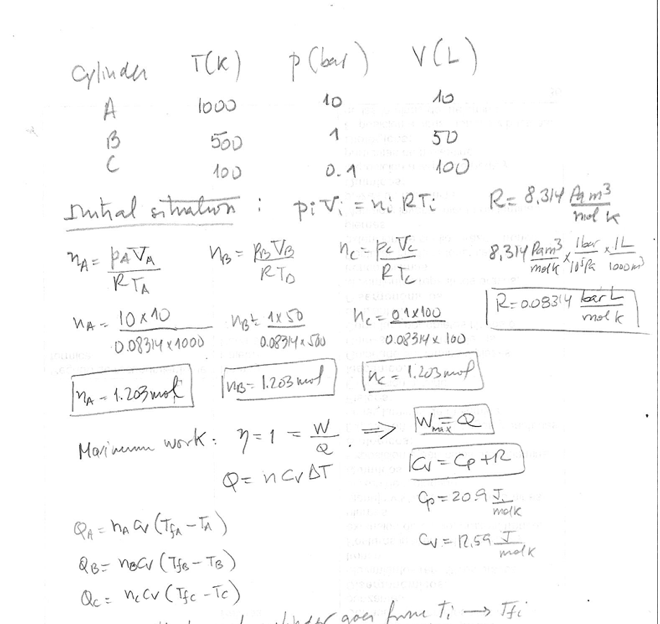 Cylinder T(K) p(bar) V(L)
A 1000 10 10
B 500 1 50
C 100 0.1 100
Initial situation : piVi = ni RTi R= 8,314 Pa m³/mol K
nA = pAVA/RTA nB = pBVB/RTB nC = pCVC/RTC 8,314 Pa m³/mol K × 1bar/10⁵Pa × 1L/1000m³
nA = 10×10/0.08314×1000 nB = 1×50/0.08314×500 nC = 0.1×100/0.08314×100 R=0.08314 bar L/mol K
nA = 1.203 mol nB = 1.203 mol nC = 1.203 mol
Maximum work: η=1 = W/Q. ⇒ Wmax = Q
Q = n Cv ΔT Cv = Cp + R
Cp = 20.9 J/mol K
QA = nA Cv (TfA − TA) Cv = 12.59 J/mol K
QB = nB Cv (TfB − TB)
QC = nC Cv (TfC − TC)
cylinder goes from Ti → Tfi